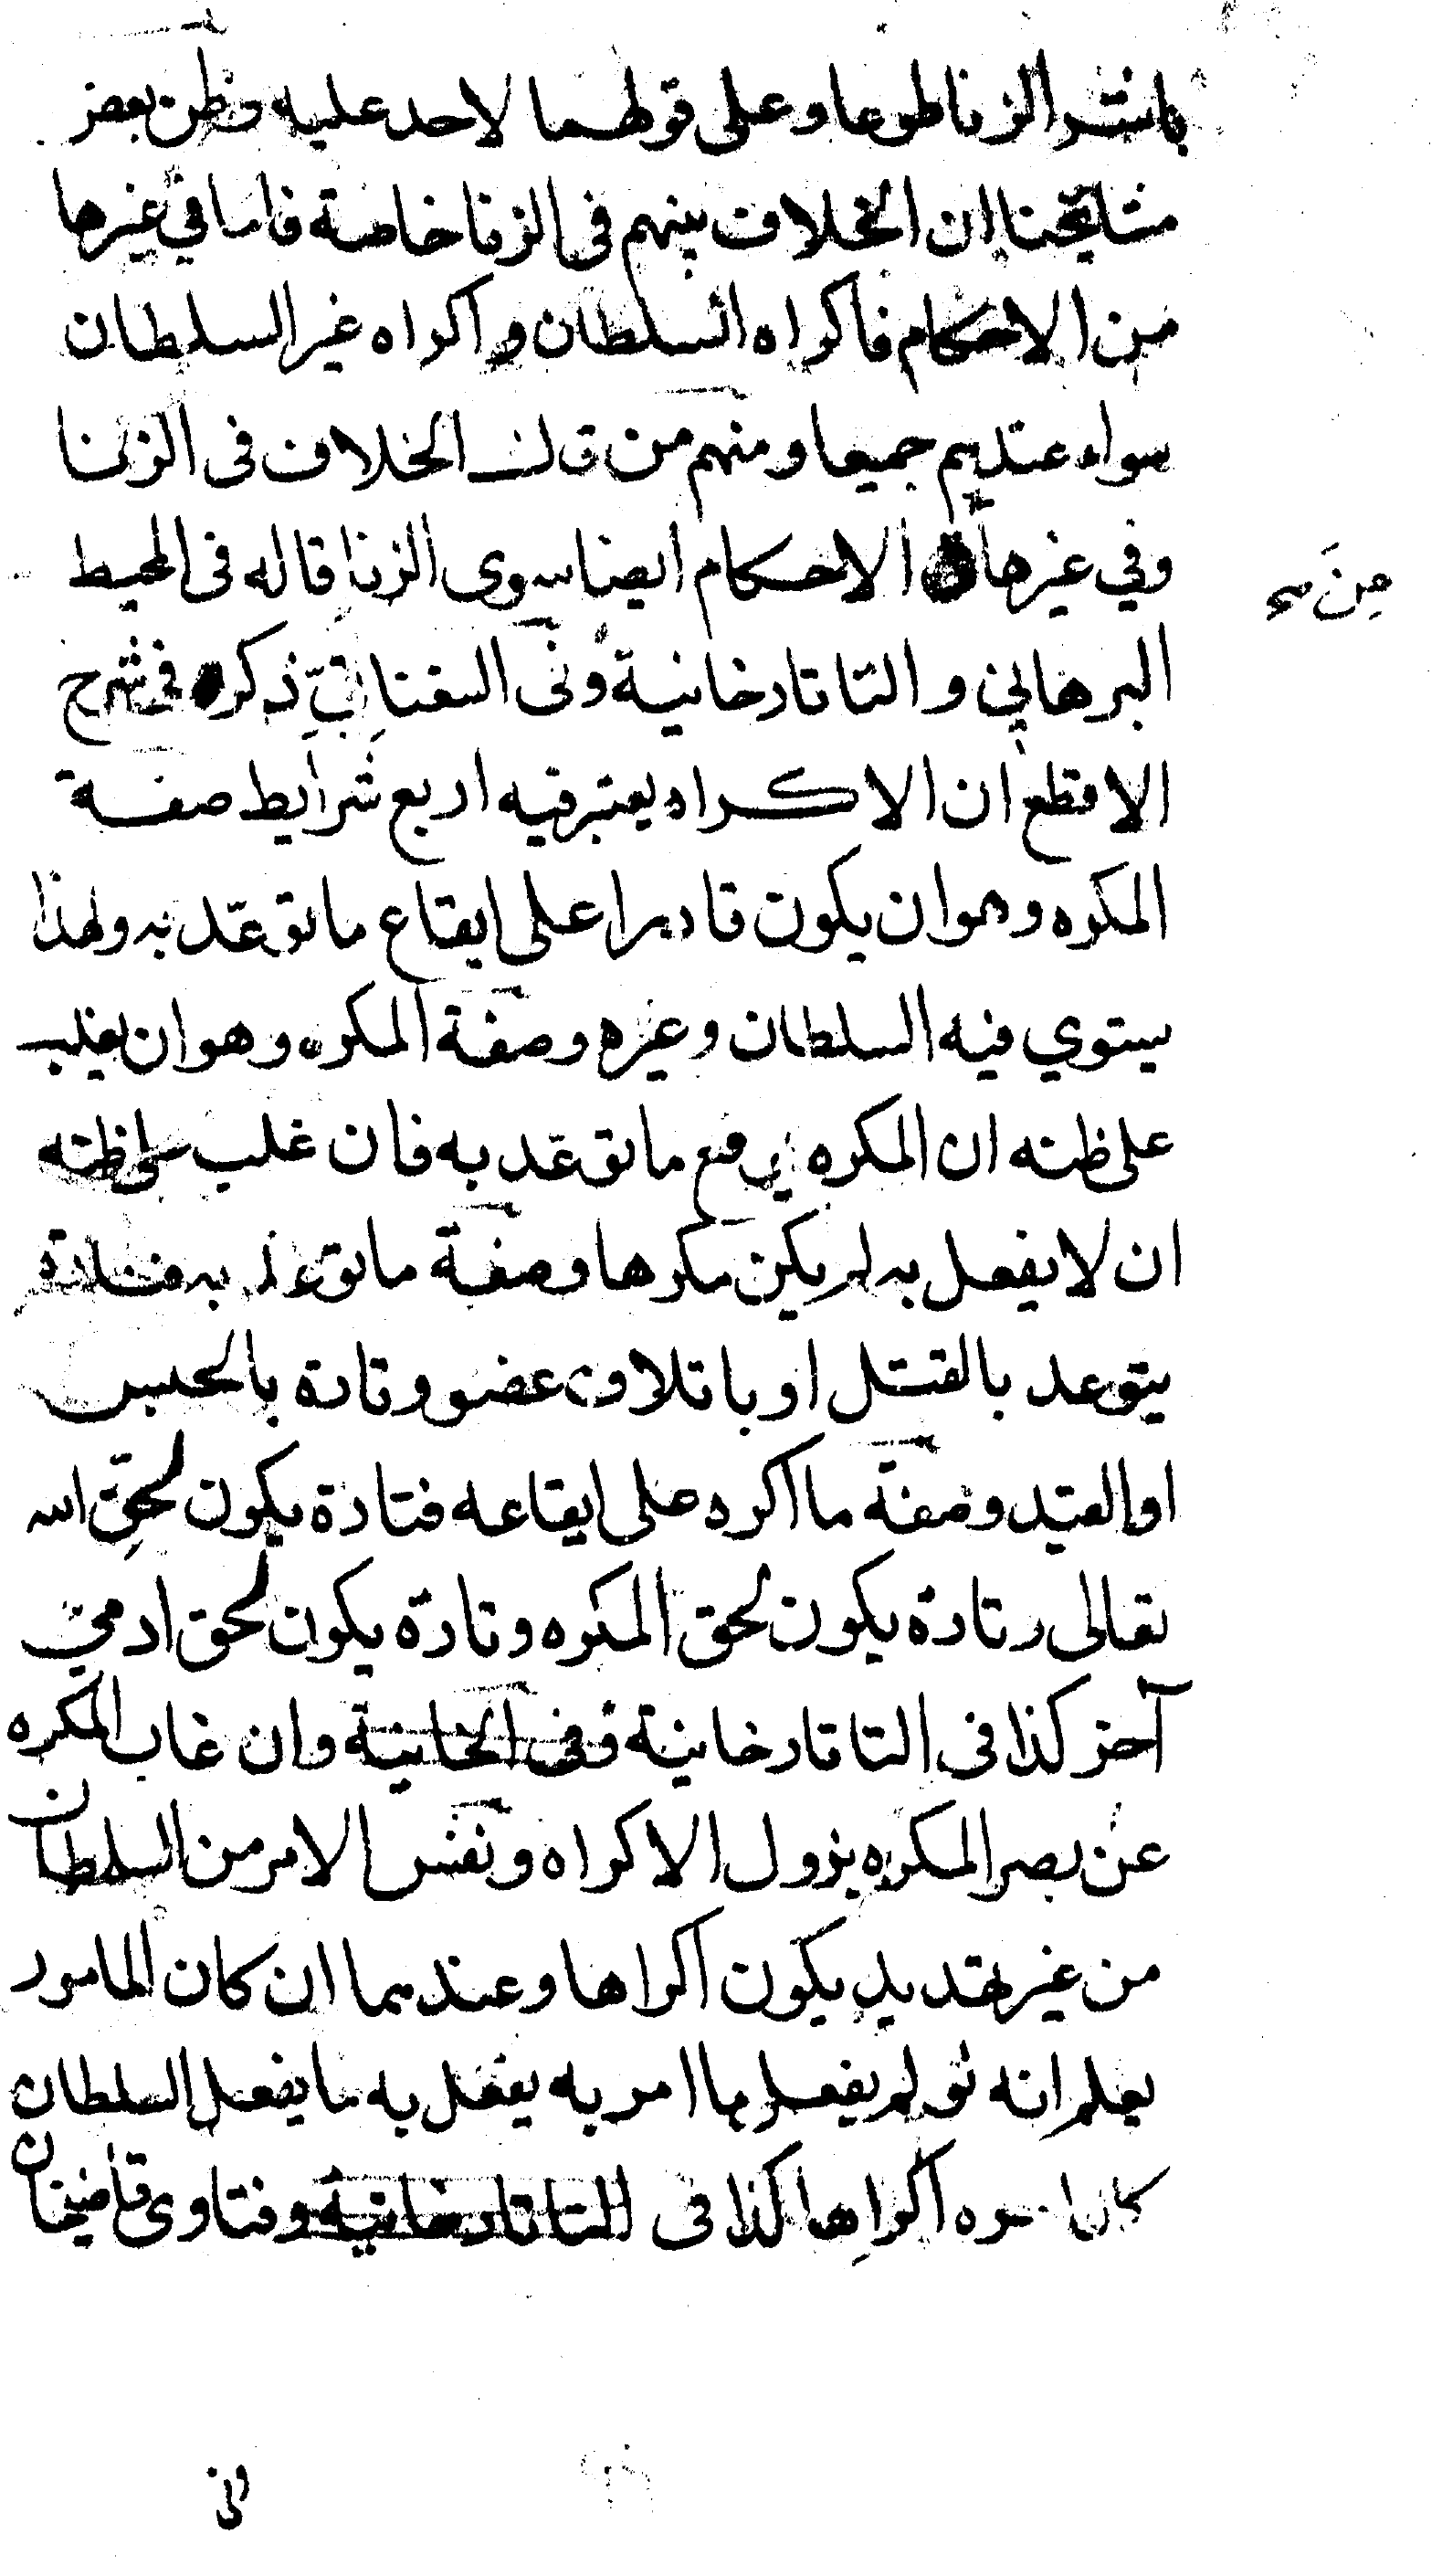 باشر الزنا طوعا وعلى قولهما لا حد عليه وظن بعض
مشايخنا ان الخلاف بينهم في الزنا خاصة فاما في غيرها
من الاحكام فاكراه السلطان واكراه غير السلطان
سواء عندهم جميعا ومنهم من قال الخلاف في الزنا
وفي غيرها الاحكام ايضا سوى الزنا قاله في المحيط
من صح
البرهاني والتاتارخانية وفي السغناقي ذكر في شرح
الاقطع ان الاكراه يعتبر فيه اربع شرايط صفة
المكره وهو ان يكون قادرا على ايقاع ما توعد به ولهذا
يستوي فيه السلطان وغيره وصفة المكره وهو ان يغلب
على ظنه ان المكره يرفع ما توعد به فان غلب على ظنه
ان لا يفعل به لم يكن مكرها وصفة ما توعد به فتارة
يتوعد بالقتل او باتلاف عضو وتارة بالحبس
او القيد وصفة ما اكره على ايقاعه فتارة يكون لحق الله
تعالى وتارة يكون لحق المكره وتارة يكون لحق ادمي
آخر كذا في التاتارخانية وفي الخانية وان غاب المكره
عن بصر المكره يزول الاكراه ونفس الامر من السلطان
من غير تهديد يكون اكراها وعندهما ان كان المامور
يعلم انه لو لم يفعل ما امر به يفعل به ما يفعل السلطان
كان امره اكراها كذا في التاتارخانية وفتاوى قاضيخان
وفي